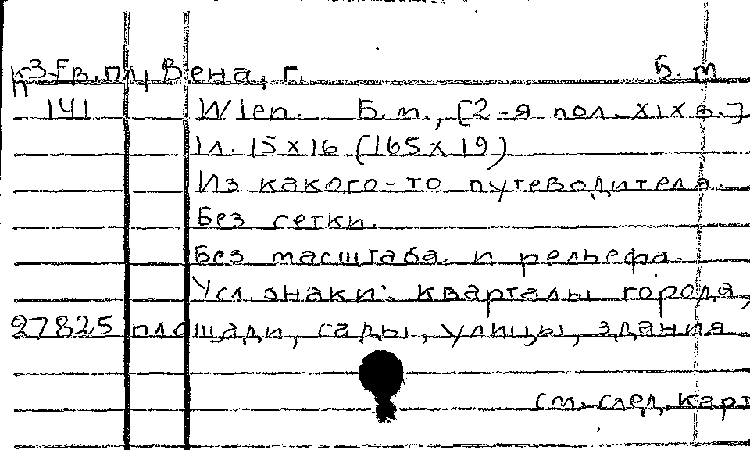 К3-Ев.пл, Вена, г. Б. м
п
141 Wien. Б.м., [2-я пол. XIX в.]
1л. 15x16 (165x19)
Из какого-то путеводителя.
Без сетки.
Без масштаба и рельефа.
Усл знаки: кварталы города,
27825 площади, сады, улицы, здания
см. след. карт